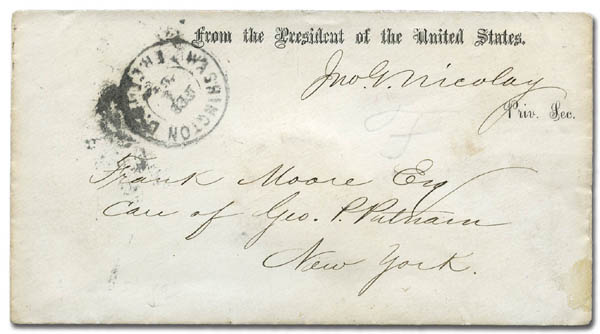 From the President of the United States.
Jno. G. Nicolay
Priv. Sec.
WASHINGTON D.C.
FREE
Frank Moore Esq
Care of Geo. P. Putnam
New York.